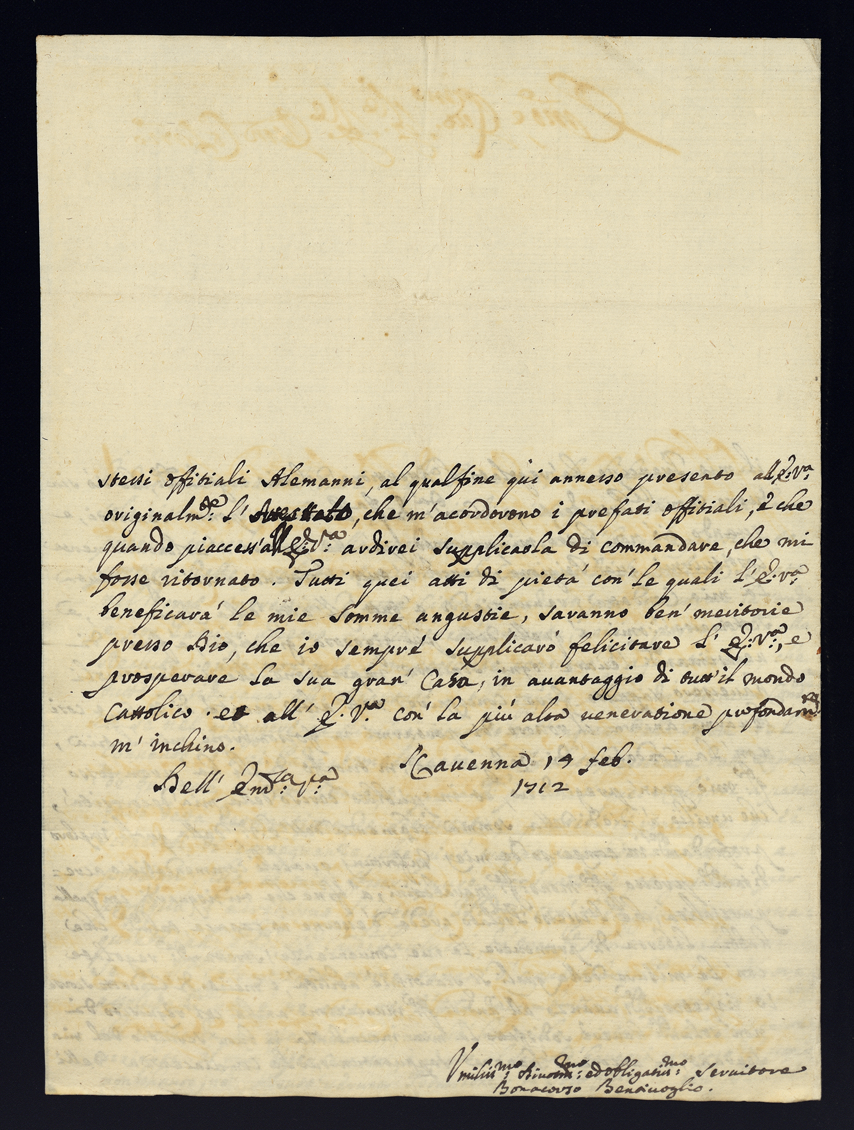 stessi offitiali Alemanni, al qual fine qui annesso presento all'E: Va
originalmte: l'Attestato, che m'acordorono i prefati offitiali, e che
quando piacess'all'E: Va ardirei supplicarla di commandare, che mi
fosse ritornato. Tutti quei atti di pietá con'le quali l'E: Va
beneficará le mie somme angustie, saranno ben' meritorie
presso Dio, che io sempré supplicaró felicitare l'E: Va, e
prosperare la sua gran' Casa, in auantaggio di tutt'il mondo
Cattolico. et all'E: Va con'la piú alta ueneratione profondamte
m'inchino.
Rauenna 14 feb.
Dell'Emza: Va
1712
Vmilissmo: Diuotmo: ed obligatissmo Seruitore
Bonacorso Bentiuoglio.